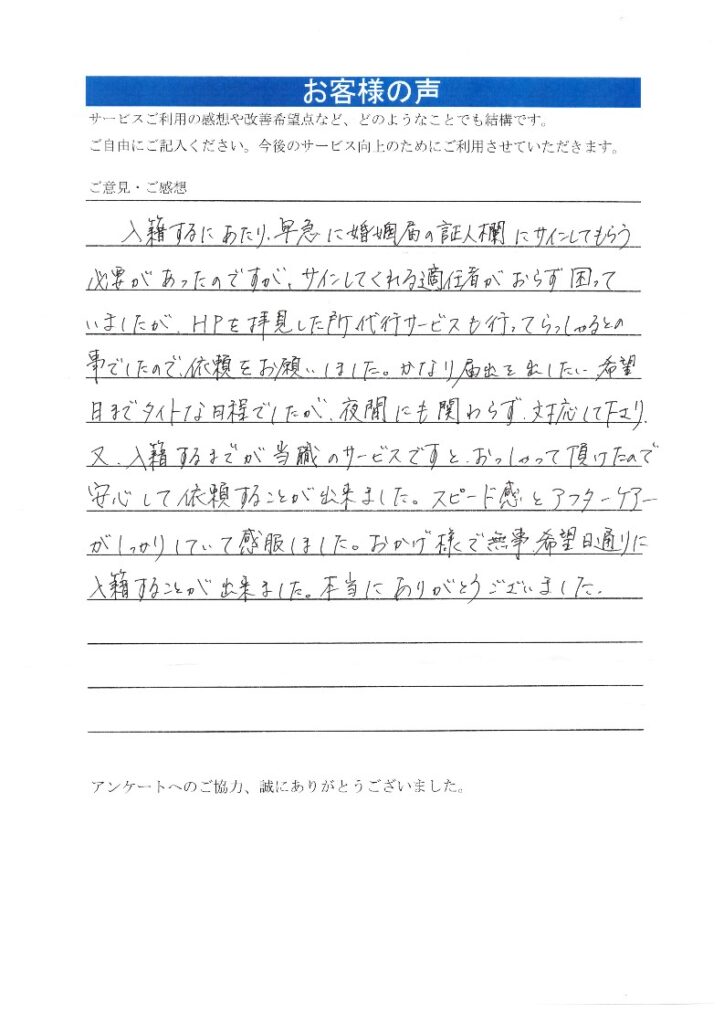 お客様の声
サービスご利用の感想や改善希望点など、どのようなことでも結構です。
ご自由にご記入ください。今後のサービス向上のためにご利用させていただきます。
ご意見・ご感想
入籍するにあたり、早急に婚姻届の証人欄にサインしてもらう
必要があったのですが、サインしてくれる適任者がおらず困って
いましたが、HPを拝見した所、代行サービスも行ってらっしゃるとの
事でしたので、依頼をお願いしました。かなり届出を出したい、希望
日までタイトな日程でしたが、夜間にも関わらず、対応して下さり、
又、入籍するまでが当職のサービスですと、おっしゃって頂けたので
安心して依頼することが出来ました。スピード感とアフターケアー
がしっかりしていて感服しました。おかげ様で無事、希望日通りに
入籍することが出来ました。本当にありがとうございました。
アンケートへのご協力、誠にありがとうございました。